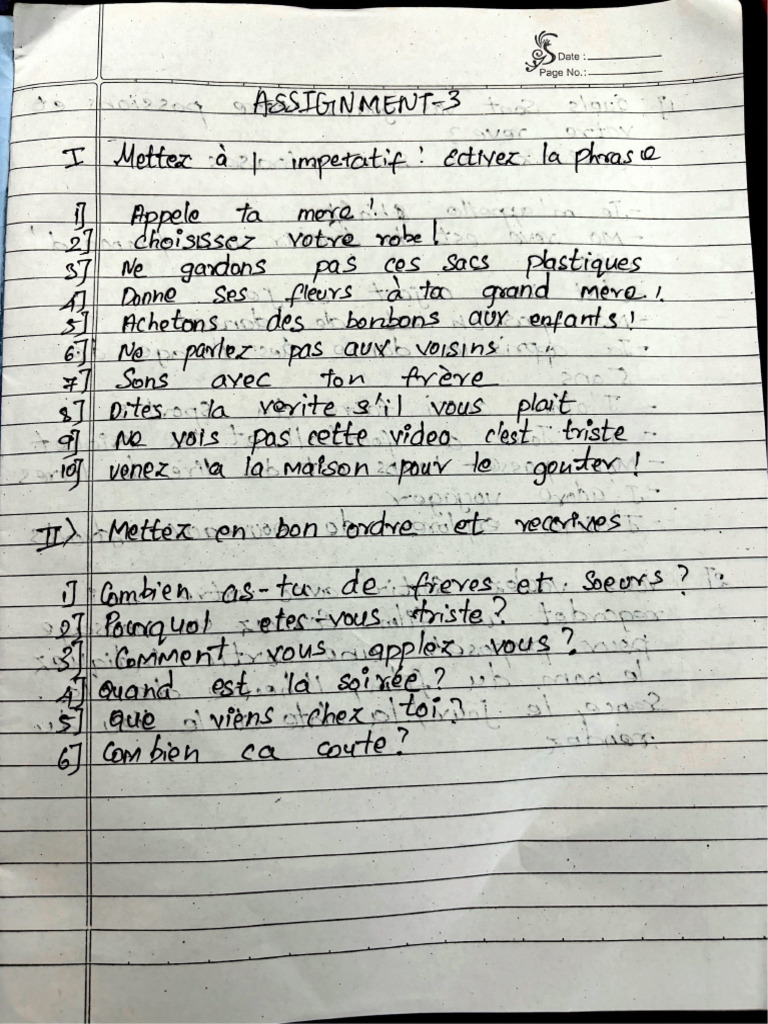 Date :
Page No.:
ASSIGNMENT-3
I Mettez à l impetatif : ectivez la phrase
1] Appele ta mere !
2] choisissez votre robe !
3] Ne gardons pas ces sacs plastiques
4] Donne ses fleurs à ta grand mere !
5] Achetons des bonbons aux enfants !
6] Ne parlez pas aux voisins
7] Sons avec ton frère
8] Dites la verite s'il vous plait
9] Ne vois pas cette video c'est triste
10] venez a la maison pour le gouter !
II> Mettez en bon ordre et recrives
1] Combien as-tu de freres et soeurs ?
2] Pourquoi etes-vous triste ?
3] Comment vous applez vous ?
4] Quand est la soirée ?
5] que viens chez toi ?
6] Combien ca coute ?